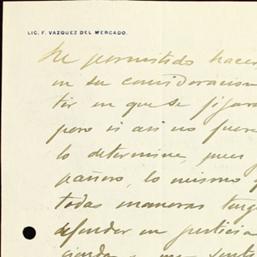 LIC. F. VAZQUEZ DEL MERCADO.
He permitido hacer
en su consideracion
ter en que se fijara
pero si asi no fuere
lo determine, pues
pañero, lo mismo
todas maneras teng
defender en justicia
me